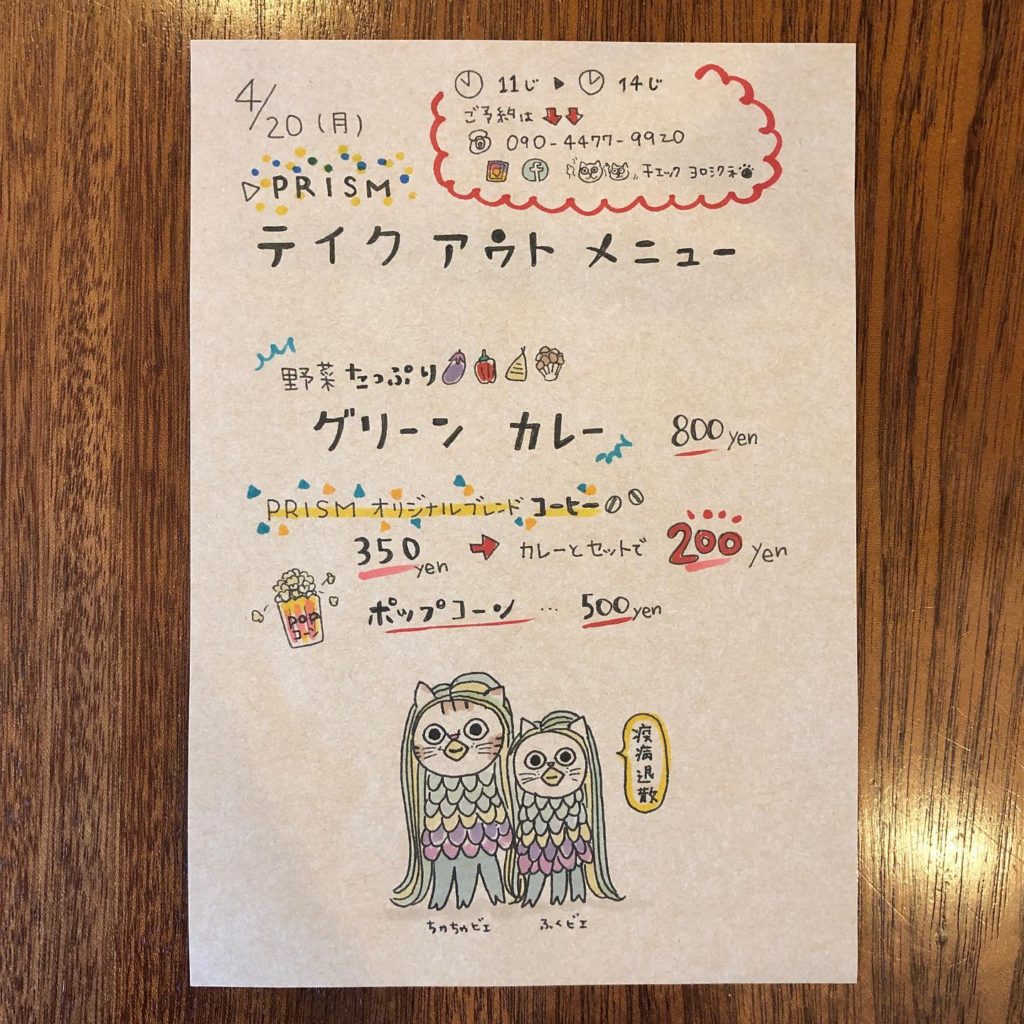 4/20(月)
11じ ▶ 14じ
ご予約は
090-4477-9920
チェック ヨロシクネ
▷PRISM
テイク アウト メニュー
野菜 たっぷり
グリーン カレー 800 yen
PRISM オリジナルブレンド コーヒー
350 yen → カレーとセットで 200 yen
POP
コーン
ポップコーン … 500 yen
疫病退散
ちゃちゃビエ ふくビエ